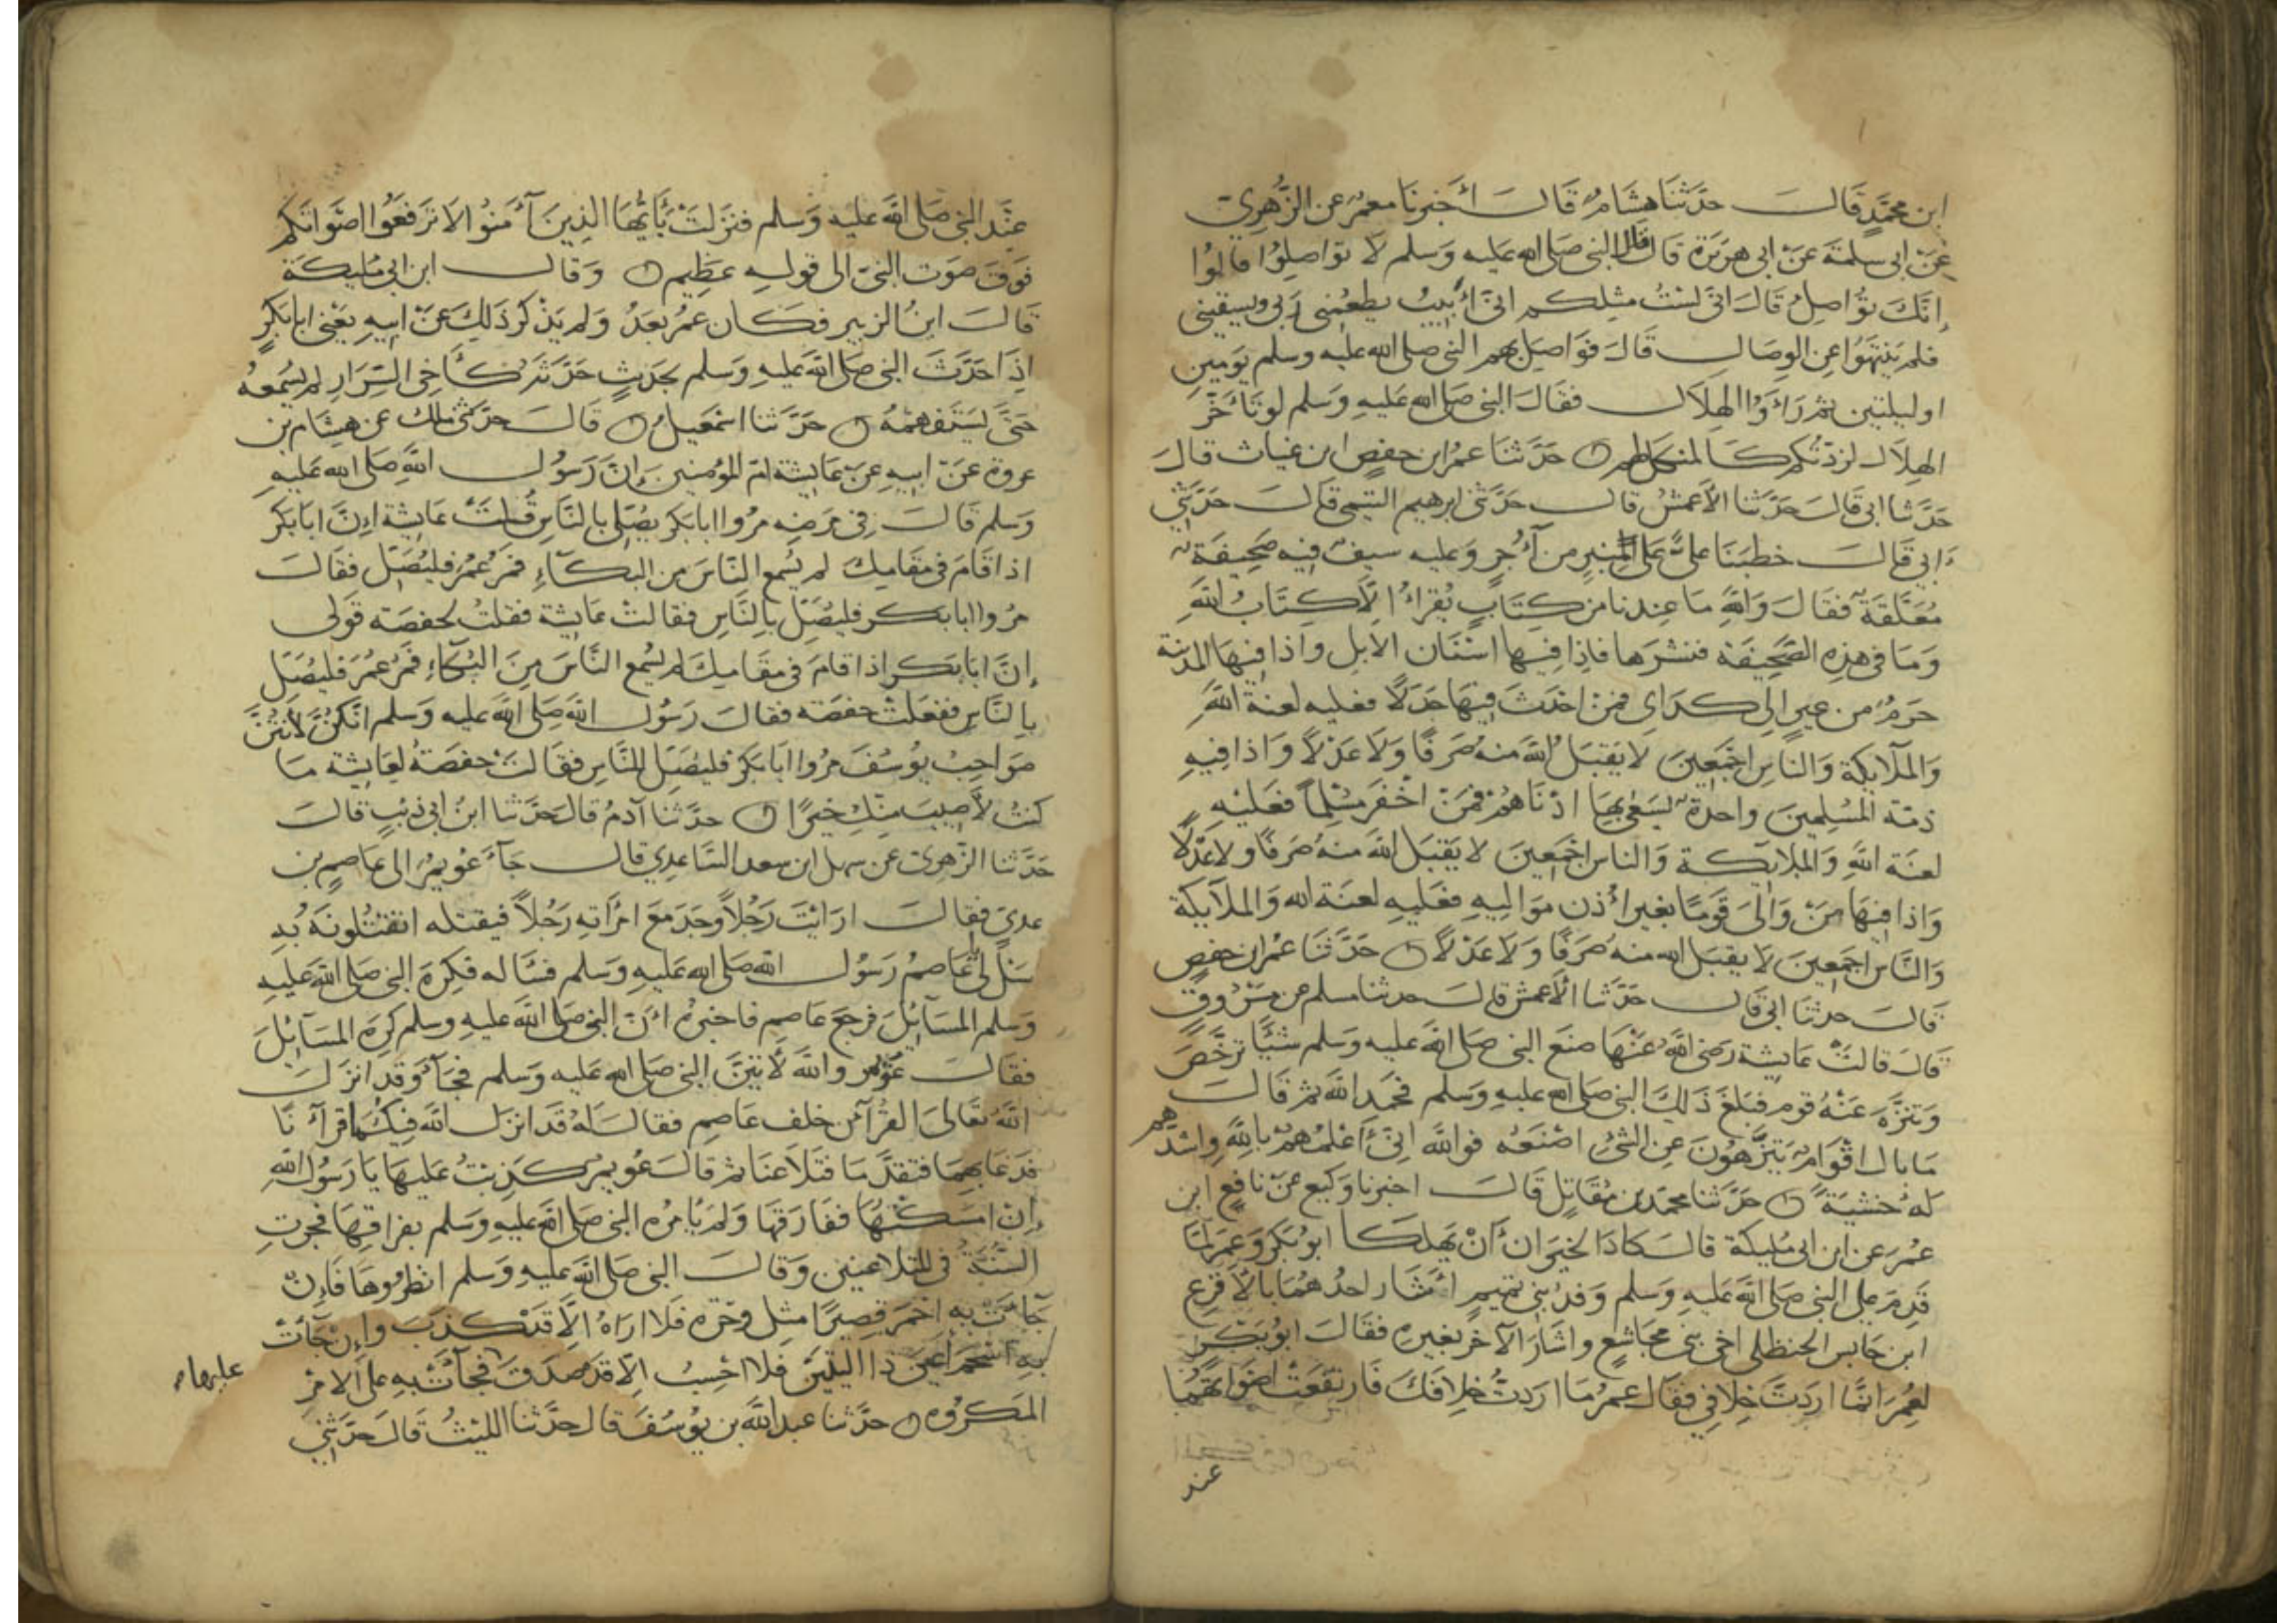 ابن محمدٍ قال حدثنا هشام قال أخبرنا معمر عن الزهري
عن ابى سلمة عن ابى هريرة قال قال النبى صلى الله عليه وسلم لا تواصلوا قالوا
إنك تواصل قال انى لست مثلكم انى أبيت يطعمنى ربى ويسقينى
فلم ينتهوا عن الوصال قال فواصل بهم النبى صلى الله عليه وسلم يومين
اوليلتين ثم رأوا الهلال فقال النبى صلى الله عليه وسلم لوتأخر
الهلال لزدتكم كالمنكل لهم حدثنا عمر ابن حفص ابن غياث قال
حدثنا ابى قال حدثنا الأعمش قال حدثنى ابرهيم التيمى قال حدثني
ابي قال خطبنا على على المنبر من آجر وعليه سيف فيه صحيفة
معلقة فقال والله ما عندنا من كتاب يقرأ الا كتاب الله
وما فى هذه الصحيفة فنشرها فاذا فيها اسنان الابل واذا فيها المدينة
حرم من عير الى كداى فمن احدث فيها حدثا فعليه لعنة الله
والملآيكة والناس اجمعين لا يقبل الله منه صرفا ولا عدلا واذا فيه
ذمة المسلمين واحدة يسعى بها ادناهم فمن اخفر مسلما فعليه
لعنة الله والملايكة والناس اجمعين لا يقبل الله منه صرفا ولا عدلا
واذا فيها من والى قوما بغير اذن مواليه فعليه لعنة الله والملآيكة
والناس اجمعين لا يقبل الله منه صرفا ولا عدلا حدثنا عمر ابن حفص
قال حدثنا ابى قال حدثنا الأعمش قال حدثنا مسلم عن مسروق
قال قالت عايشة رضى الله عنها صنع النبى صلى الله عليه وسلم شيئا ترخص
وتنزه عنه قوم فبلغ ذلك النبى صلى الله عليه وسلم فحمد الله ثم قال
ما بال اقوام يتنزهون عن الشئ اصنعه فوالله انى أعلمهم بالله واشدهم
له خشية حدثنا محمد بن مقاتل قال اخبرنا وكيع عن نافع ابن
عمر عن ابن ابى مليكة قال كادا الخيران أن يهلكا ابو بكر وعمر لما
قدم على النبى صلى الله عليه وسلم وفد بنى تميم أشار احدهما بالأقرع
ابن حابس الحنظلى اخى بنى مجاشع واشار الآخر بغيره فقال ابو بكر
لعمر انما اردت خلافى فقال عمر ما اردت خلافك فارتفعت اصواتهما
عند
عند النبى صلى الله عليه وسلم فنزلت يأيها الذين آمنوا لا ترفعوا اصواتكم
فوق صوت النبى الى قوله عظيم وقال ابن ابى مليكة
قال ابن الزبير فكان عمر بعد ولم يذكر ذلك عن ابيه يعنى ابا بكر
اذا حدث النبى صلى الله عليه وسلم بحديث حدثه كأخى السرار لم يسمعه
حتى يستفهمه حدثنا اسمعيل قال حدثنى ملك عن هشام بن
عروة عن ابيه عن عايشة ام المؤمنين ان رسول الله صلى الله عليه
وسلم قال فى مرضه مروا ابا بكر يصلى بالناس قالت عايشة ان ابا بكر
اذا قام فى مقامك لم يسمع الناس من البكآء فمر عمر فليصل فقال
مروا ابا بكر فليصل بالناس فقالت عايشة فقلت لحفصة قولى
ان ابا بكر اذا قام فى مقامك لم يسمع الناس من البكآء فمر عمر فليصل
بالناس ففعلت حفصة فقال رسول الله صلى الله عليه وسلم انكن لأنتن
صواحب يوسف مروا ابا بكر فليصل للناس فقالت حفصة لعايشة ما
كنت لأصيب منك خيرا حدثنا آدم قال حدثنا ابن ابى ذئب قال
حدثنا الزهرى عن سهل ابن سعد الساعدى قال جآء عويمر الى عاصم بن
عدى فقال ارايت رجلا وجد مع امراته رجلا فيقتله اتقتلونه به
سل لى يا عاصم رسول الله صلى الله عليه وسلم فسأله فكره النبى صلى الله عليه
وسلم المسآئل فرجع عاصم فاخبره ان النبى صلى الله عليه وسلم كره المسآئل
فقال عويمر والله لآتين النبى صلى الله عليه وسلم فجآء وقد انزل
الله تعالى القرآن خلف عاصم فقال له قد انزل الله فيكما قرآنا
فدعا بهما فتقدما فتلاعنا ثم قال عويمر كذبت عليها يا رسول الله
ان امسكتها ففارقها ولم يامره النبى صلى الله عليه وسلم بفراقها فجرت
السنة فى المتلاعنين وقال النبى صلى الله عليه وسلم انظروها فان
جآءت به احمر قصيرا مثل وحرة فلا اراه الا قد كذب وان جآءت
به اسحم اعين ذا اليتين فلا احسب الا قد صدق عليها فجآءت به على الامر
المكروه حدثنا عبد الله بن يوسف قال حدثنا الليث قال حدثنى